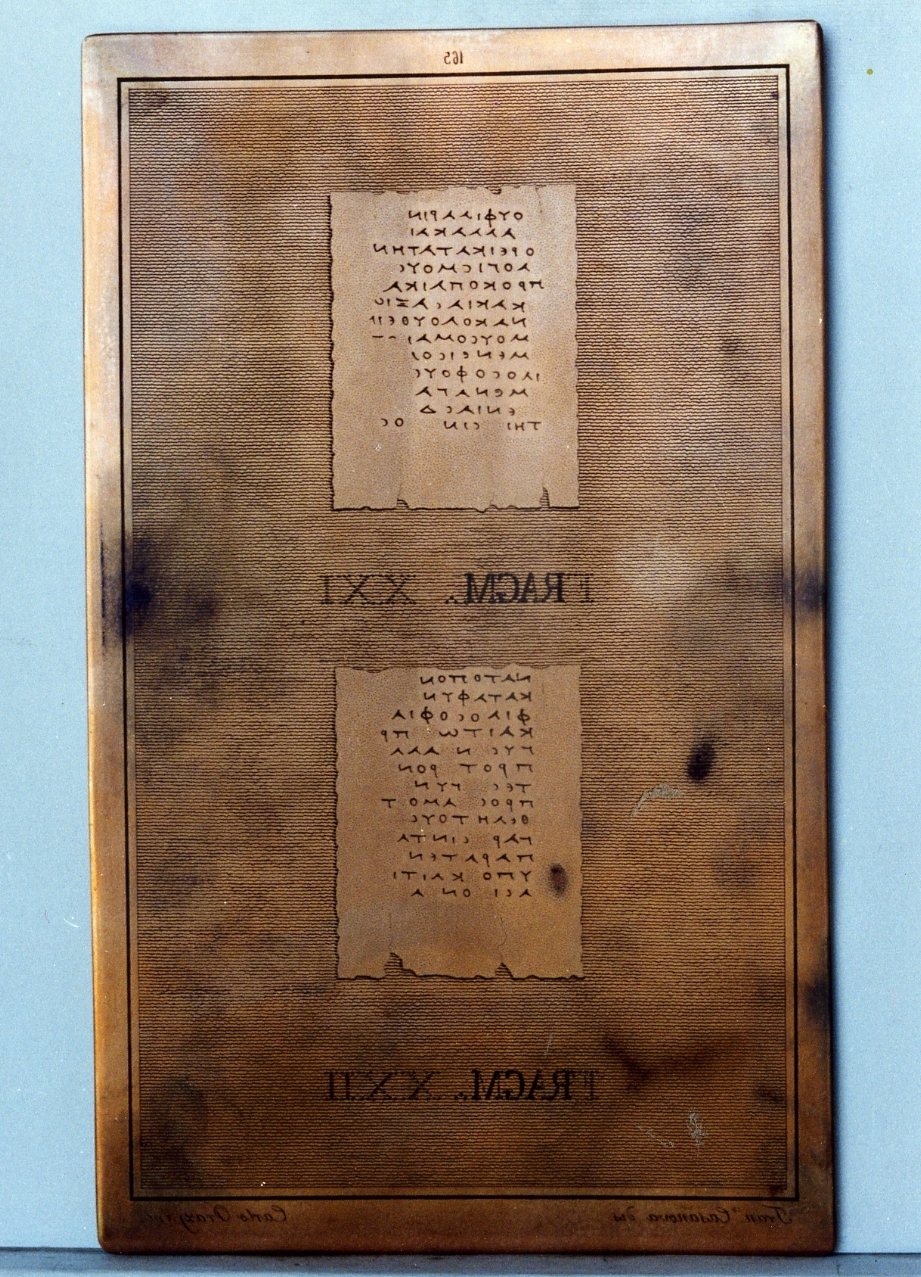 165
ΟΥΦΙΛΛΑΡΙΝ
ΑΛΛΑΚΑΙ
ΟΡΕΙΚΑΤΑΤΗΝ
ΛΟΓΙϹΜΟΥϹ
ΠΡΟΚΟΠΛΙΚΑ
ΚΑΚΙΑϹΑΞΙΟ
ΝΑΚΟΛΟΥΘΕΙ
ΜΟΥϹΟΜΑΙ
ΜΕΝΕΙϹΟΙ
ΙΛΟϹΟΦΟΥϹ
ΜΕΝΑΤΑ
ΕΝΙΑϹΔ
ΤΗΙ ϹΙΝ ΟϹ
FRAGM. XXI
ΝΑΤΟΠΟΝ
ΚΑΤΑΦΥΝ
ΦΙΛΟϹΟΦΙΑ
ΚΑΙΤΩ ΠΡ
ΓΥϹ Ν ΑΛΛ
ΠΡΟΤ ΡΟΝ
ΤΕϹ ΓΥΝ
ΠΡΟϹ ΑΜΟ Τ
ΘϹΛΗΤΟΥϹ
ΓΑΡ ϹΙΝΤΑ
ΠΑΡΑΤΕΝ
ΥΠΟ ΚΑΙΤΙ
ΑϹΙ ΟΝ Α
FRAGM. XXII
Casanova dis
Carlo